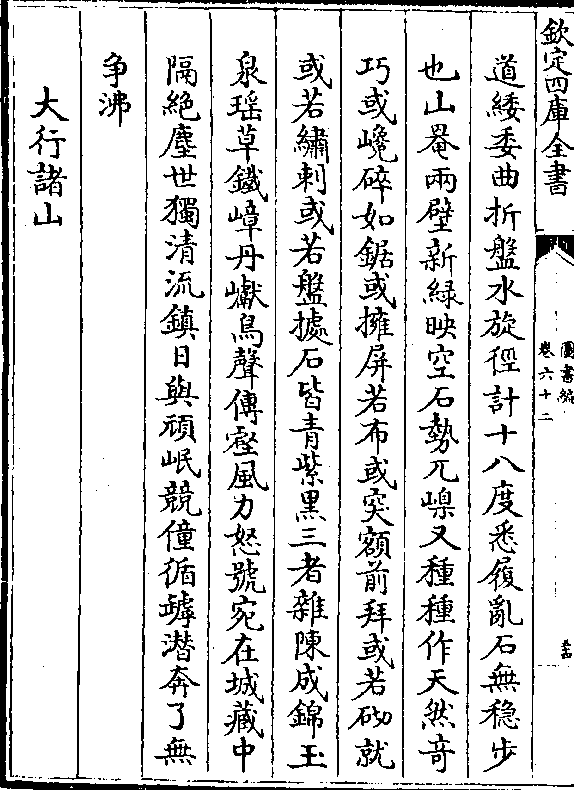 欽定四庫全書
圖書編
卷六十二
道緌委曲折盤水旋徑計十八度悉履亂石無穏步
也山罨兩壁新緑映空石勢兀嵲又種種作天然竒
巧或巉碎如鋸或擁屏若布或突額前拜或若砌就
或若繡刺或若盤據石皆青紫黒三者雜陳成錦玉
泉瑶草鐵嶂丹巘鳥聲傳壑風力怒號宛在城藏中
隔絶塵世獨清流鎮日與頑岷競僮循罅濳奔了無
争沸
大行諸山